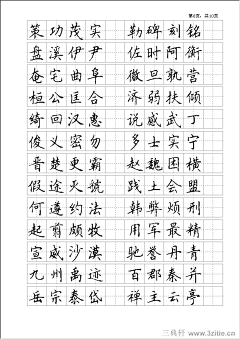 第6页，共10页
策功茂实 勒碑刻铭
盘溪伊尹 佐时阿衡
奄宅曲阜 微旦孰营
桓公匡合 济弱扶倾
绮回汉惠 说感武丁
俊义密勿 多士实宁
晋楚更霸 赵魏困横
假途灭虢 践土会盟
何遵约法 韩弊烦刑
起翦颇牧 用军最精
宣威沙漠 驰誉丹青
九州禹迹 百郡秦并
岳宗泰岱 禅主云亭
www.3zitie.cn